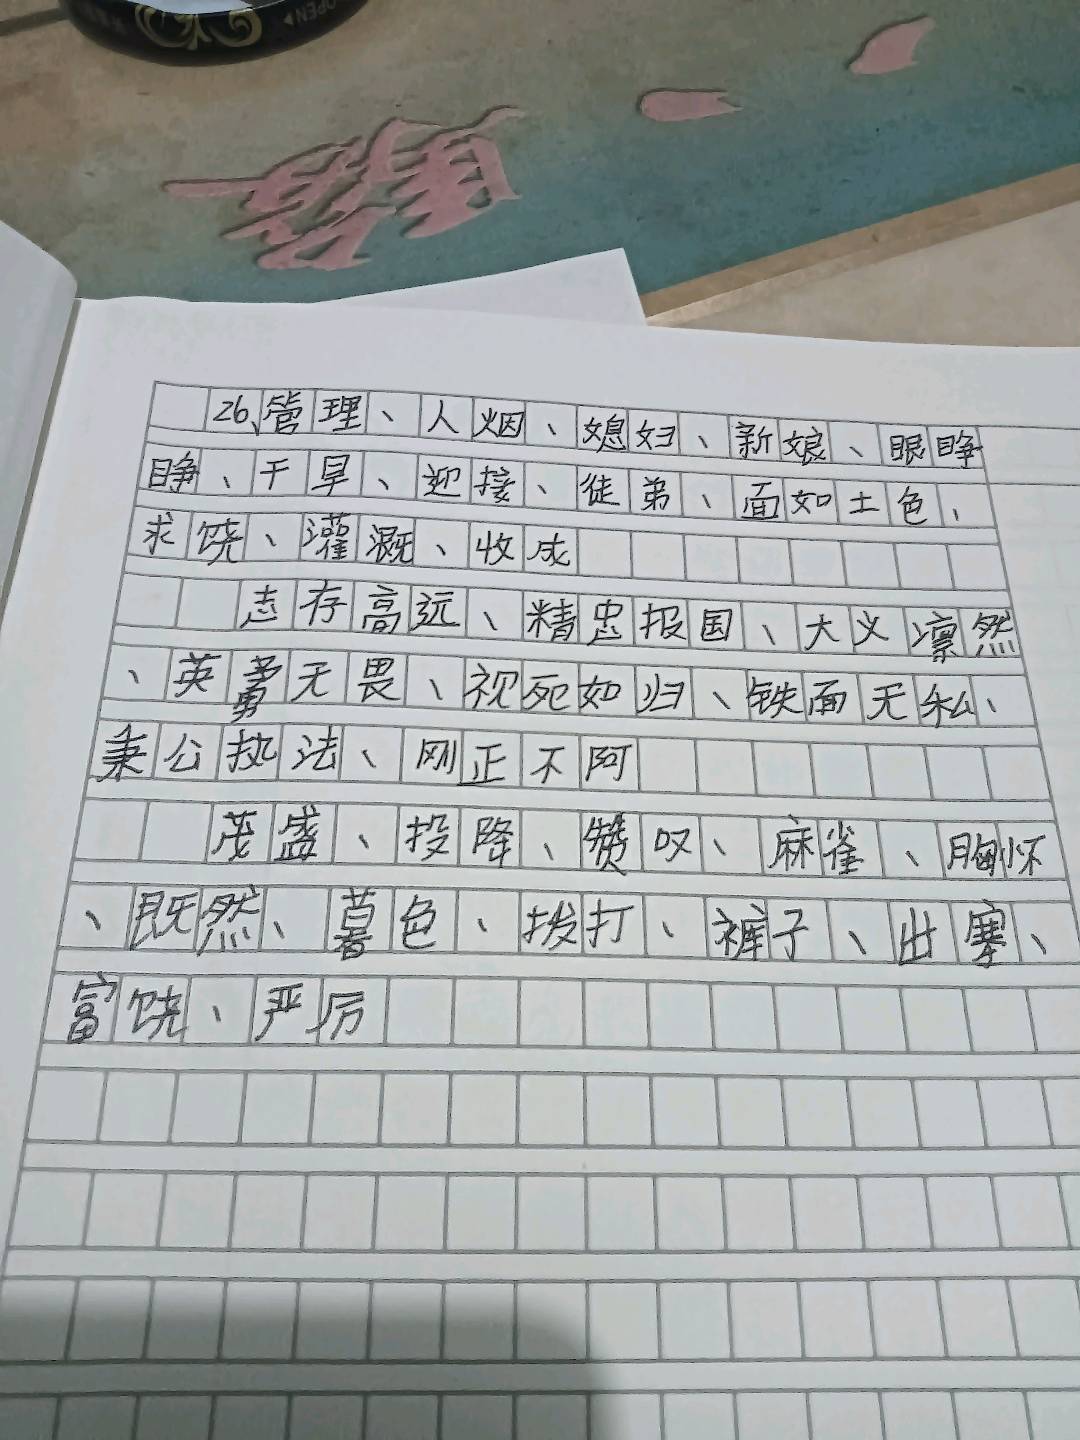 OPEN
26、管理、人烟、媳妇、新娘、眼睁
睁、干旱、迎接、徒弟、面如土色、
求饶、灌溉、收成
志存高远、精忠报国、大义凛然
、英勇无畏、视死如归、铁面无私、
秉公执法、刚正不阿
茂盛、投降、赞叹、麻雀、胸怀
、既然、暮色、拨打、裤子、出塞、
富饶、严厉